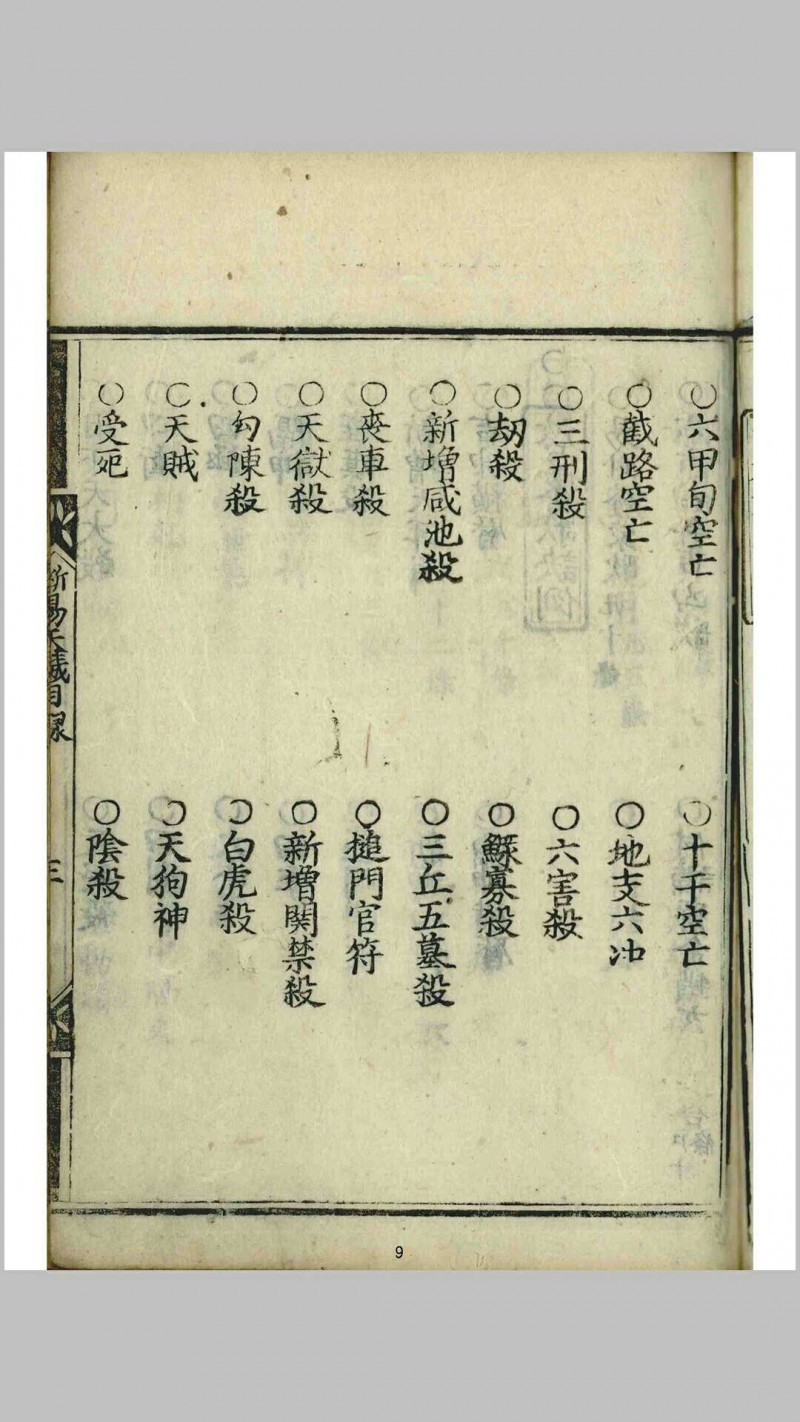 ○六甲旬空亡
○十干空亡
○截路空亡
○地支六冲
○三刑殺
○六害殺
○劫殺
○鰥寡殺
○新增咸池殺
○三丘五墓殺
○喪車殺
○搥門官符
○天獄殺
○新增関禁殺
○勾陳殺
○白虎殺
○天賊
○天狗神
○受死
○陰殺
目录
三
9